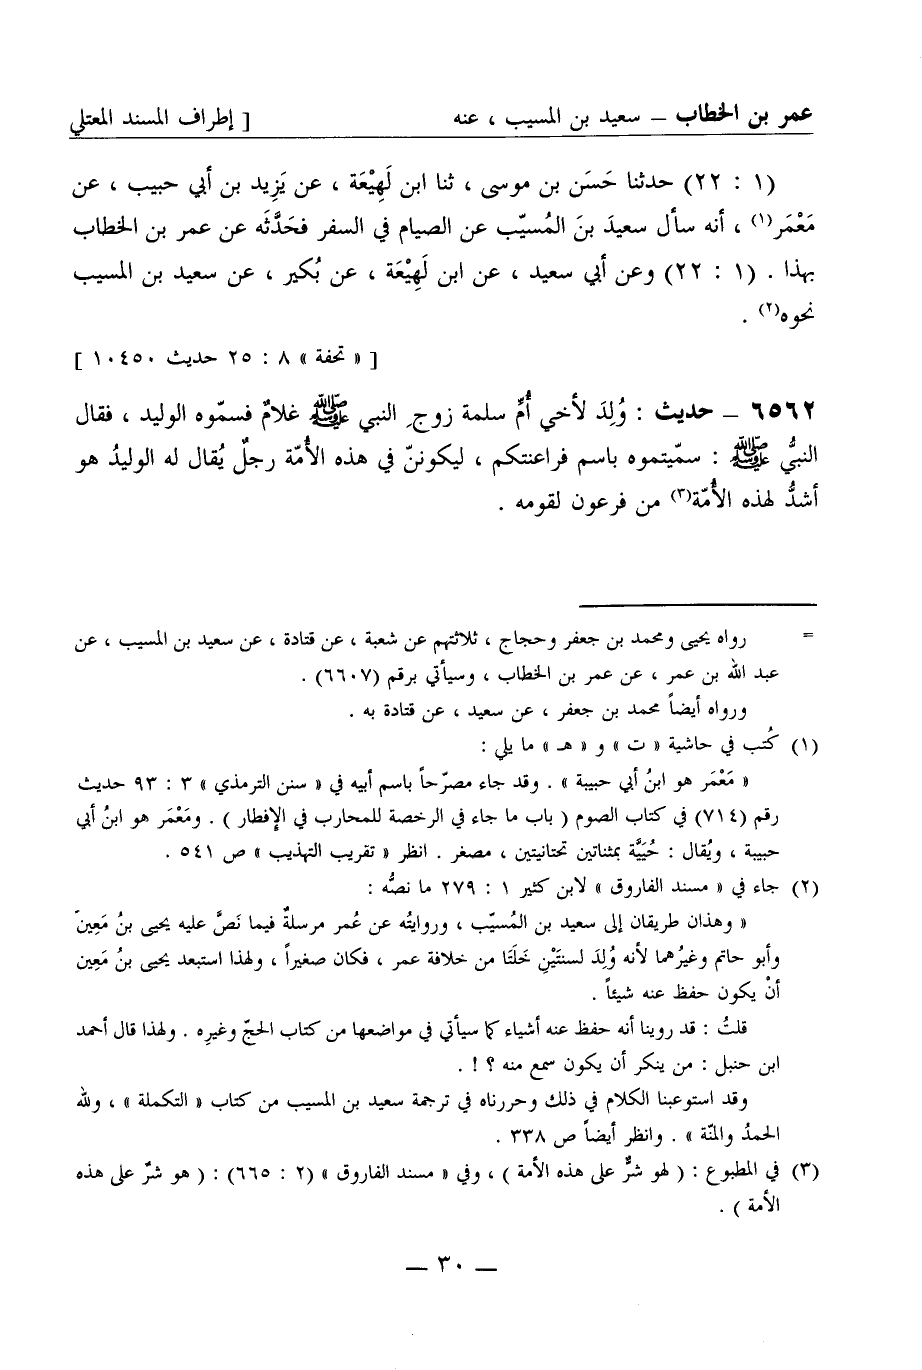 عمر بن الخطاب – سعيد بن المسيب ، عنه [ إطراف المسند المعتلي
(١ : ٢٢) حدثنا حَسَن بن موسى ، ثنا ابن لَهِيْعَة ، عن يَزِيد بن أبي حبيب ، عن
مَعْمَر(١) ، أنه سأل سعيدَ بنَ المُسيّب عن الصيام في السفر فحَدَّثَه عن عمر بن الخطاب
بهذا . (١ : ٢٢) وعن أبي سعيد ، عن ابن لَهِيْعَة ، عن بُكير ، عن سعيد بن المسيب
نحوه(٢) .
[ « تحفة » ٨ : ٢٥ حديث ١٠٤٥٠ ]
٦٥٦٢ – حديث : وُلِدَ لأخي أُمِّ سلمة زوجِ النبي ﷺ غلامٌ فسمّوه الوليد ، فقال
النبيُّ ﷺ : سمّيتموه باسم فراعنتكم ، ليكوننّ في هذه الأُمّة رجلٌ يُقال له الوليدُ هو
أشدُّ لهذه الأُمّة(٣) من فرعون لقومه .
= رواه يحيى ومحمد بن جعفر وحجاج ، ثلاثتهم عن شعبة ، عن قتادة ، عن سعيد بن المسيب ، عن
عبد الله بن عمر ، عن عمر بن الخطاب ، وسيأتي برقم (٦٦٠٧) .
ورواه أيضاً محمد بن جعفر ، عن سعيد ، عن قتادة به .
(١) كُتب في حاشية « ت » و « هـ » ما يلي :
« مَعْمَر هو ابنُ أبي حبيبة » . وقد جاء مصرّحاً باسم أبيه في « سنن الترمذي » ٣ : ٩٣ حديث
رقم (٧١٤) في كتاب الصوم ( باب ما جاء في الرخصة للمحارب في الإفطار ) . ومَعْمَر هو ابنُ أبي
حبيبة ، ويُقال : حُيَيَّة بمثناتين تحتانيتين ، مصغر . انظر « تقريب التهذيب » ص ٥٤١ .
(٢) جاء في « مسند الفاروق » لابن كثير ١ : ٢٧٩ ما نصُّه :
« وهذان طريقان إلى سعيد بن المُسيّب ، وروايتُه عن عُمر مرسلةٌ فيما نَصَّ عليه يحيى بنُ مَعِينَ
وأبو حاتم وغيرُهما لأنه وُلِدَ لسنتَيْنِ خَلَتَا من خلافة عمر ، فكان صغيراً ، ولهذا استبعد يحيى بنُ مَعِين
أنْ يكون حفظ عنه شيئاً .
قلتُ : قد روينا أنه حفظ عنه أشياء كما سيأتي في مواضعها من كتاب الحجّ وغيرِه . ولهذا قال أحمد
ابن حنبل : من ينكر أن يكون سمع منه ؟ ! .
وقد استوعبنا الكلام في ذلك وحررناه في ترجمة سعيد بن المسيب من كتاب « التكملة » ، ولله
الحمدُ والمنّة » . وانظر أيضاً ص ٣٣٨ .
(٣) في المطبوع : ( لهو شرٌّ على هذه الأمة ) ، وفي « مسند الفاروق » (٢ : ٦٦٥) : ( هو شرٌّ على هذه
الأمة ) .
– ٣٠ –